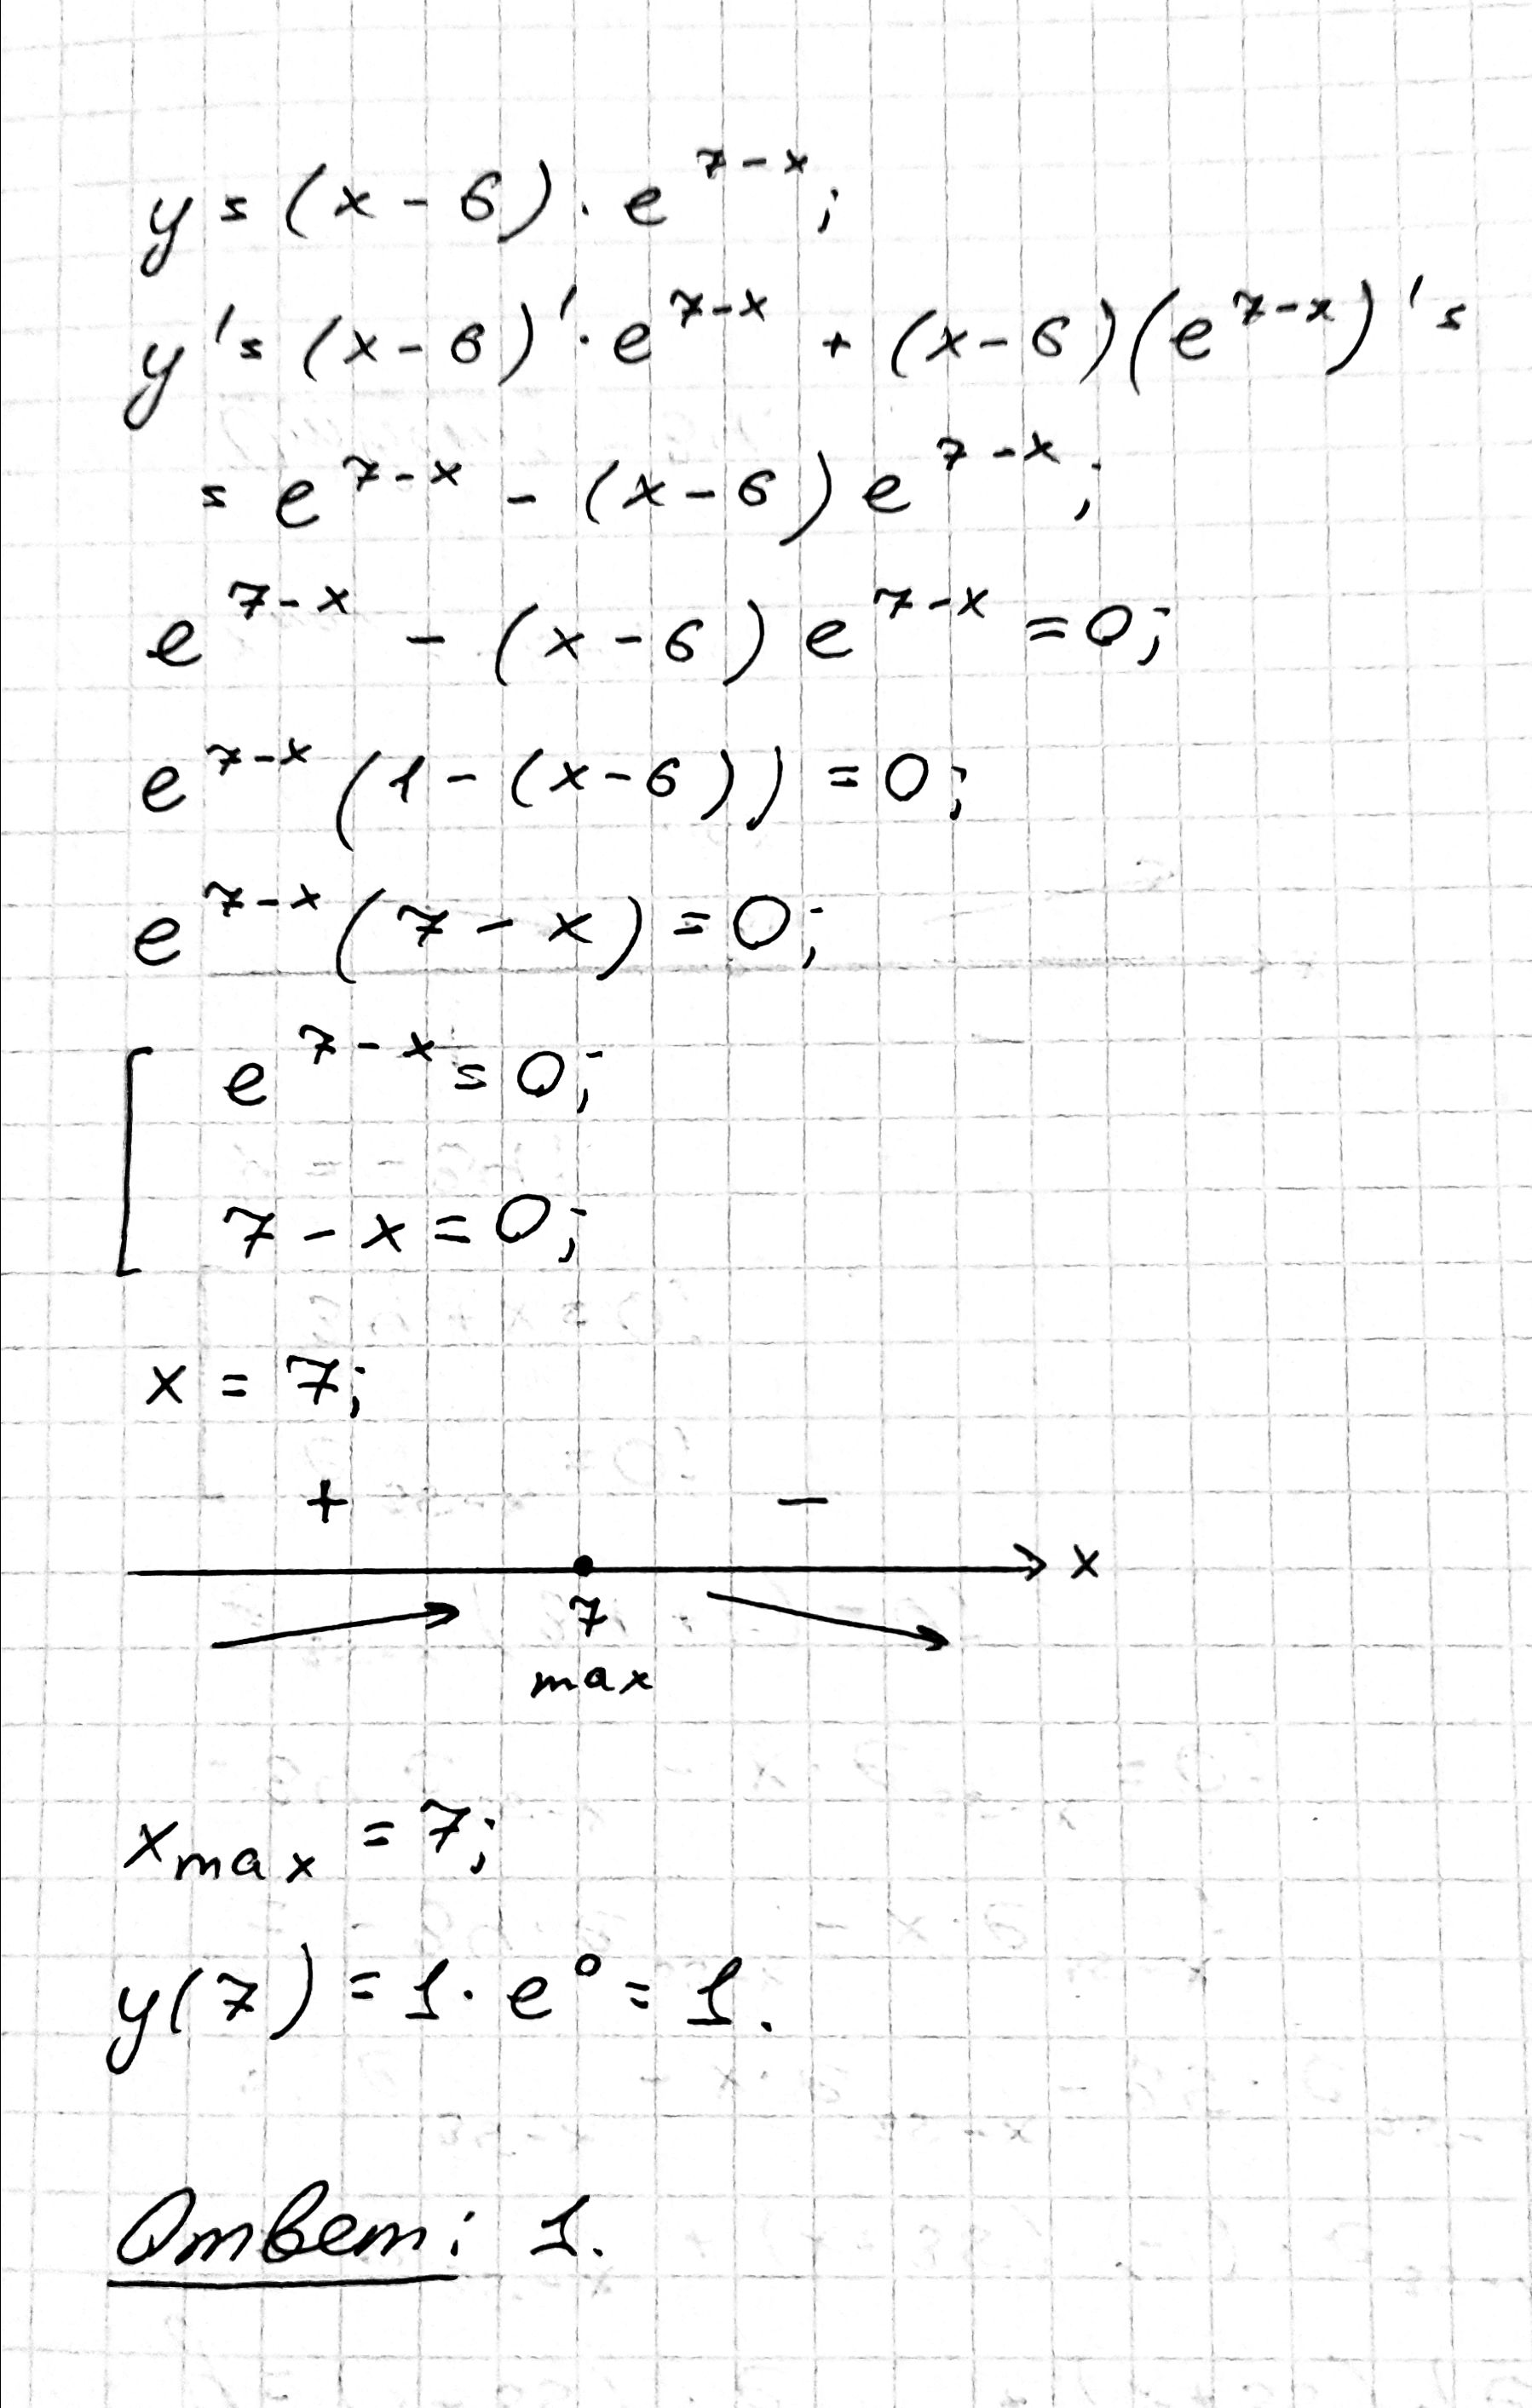 y = (x - 6) · e^{7-x};
y' = (x - 6)' · e^{7-x} + (x - 6)(e^{7-x})' =
= e^{7-x} - (x - 6) e^{7-x};
e^{7-x} - (x - 6) e^{7-x} = 0;
e^{7-x} (1 - (x - 6)) = 0;
e^{7-x} (7 - x) = 0;
[ e^{7-x} = 0;
7 - x = 0;
x = 7;
+ -
x
7
max
x_{max} = 7;
y(7) = 1 · e^0 = 1.
Ответ: 1.